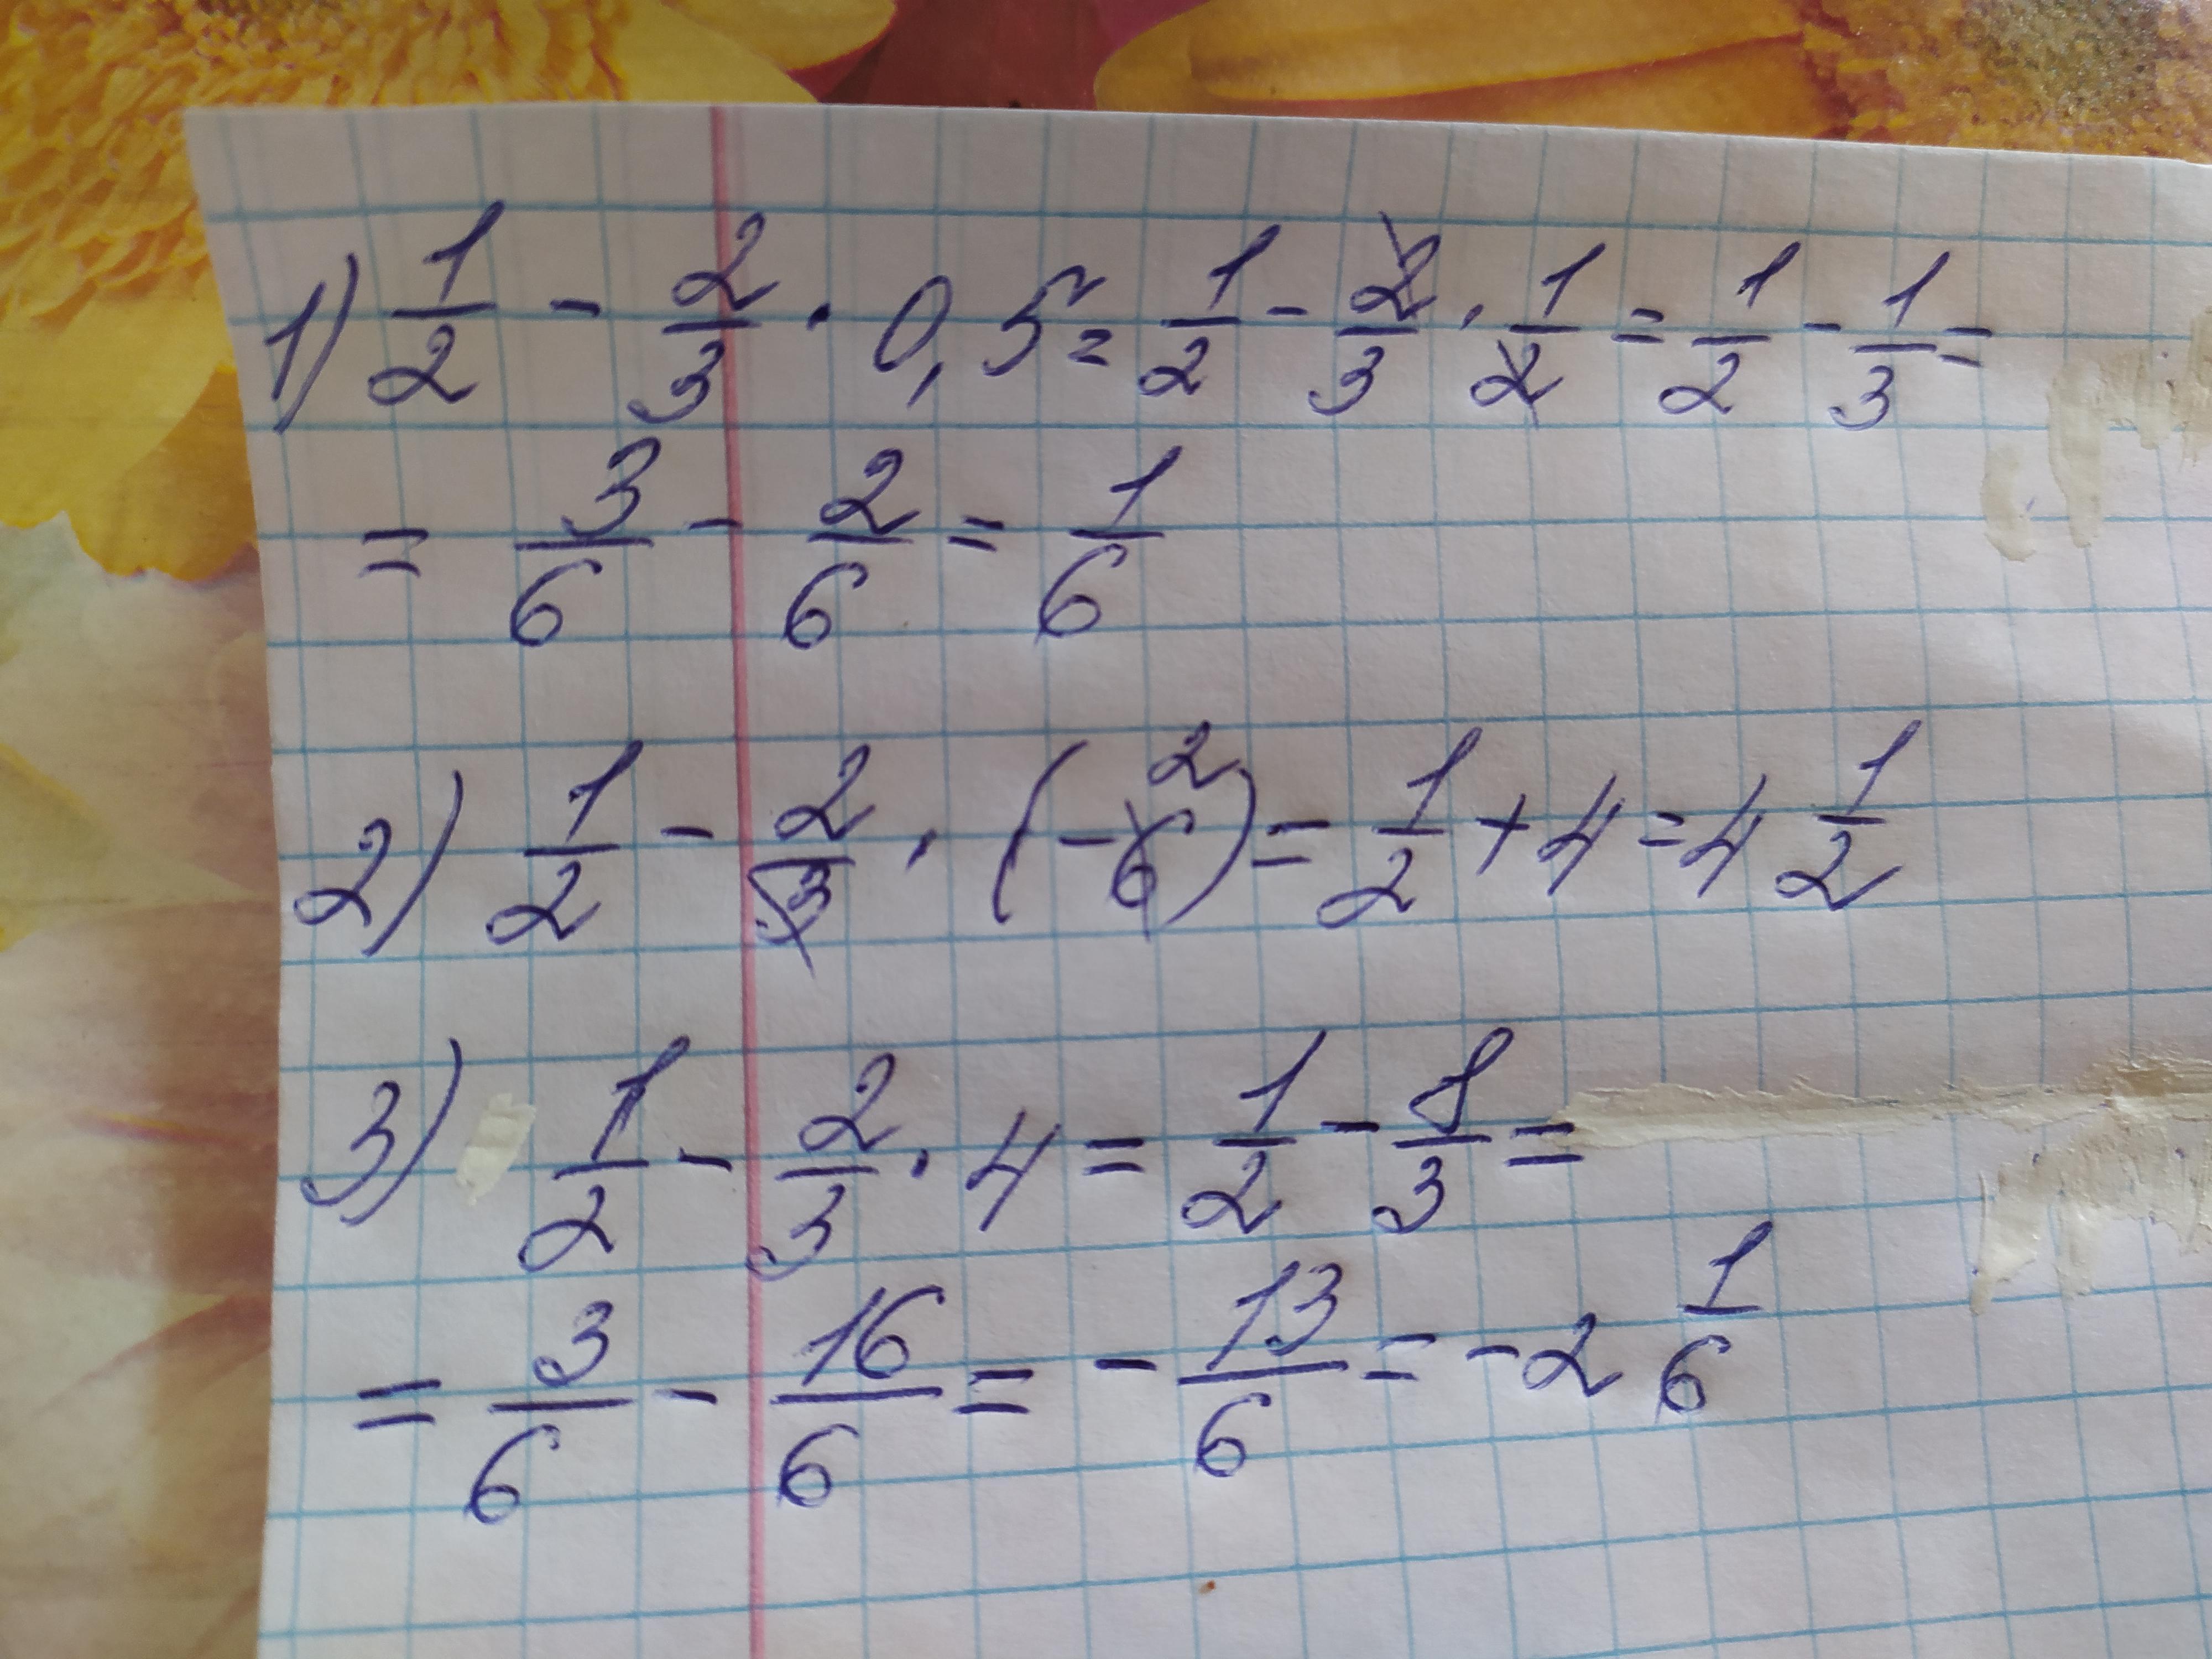 1) 1/2 - 2/3 · 0,5 = 1/2 - 2/3 · 1/2 = 1/2 - 1/3 =
= 3/6 - 2/6 = 1/6
2) 1/2 - 2/3 · (-6 2) = 1/2 + 4 = 4 1/2
3) 1/2 - 2/3 · 4 = 1/2 - 8/3 =
= 3/6 - 16/6 = - 13/6 = -2 1/6